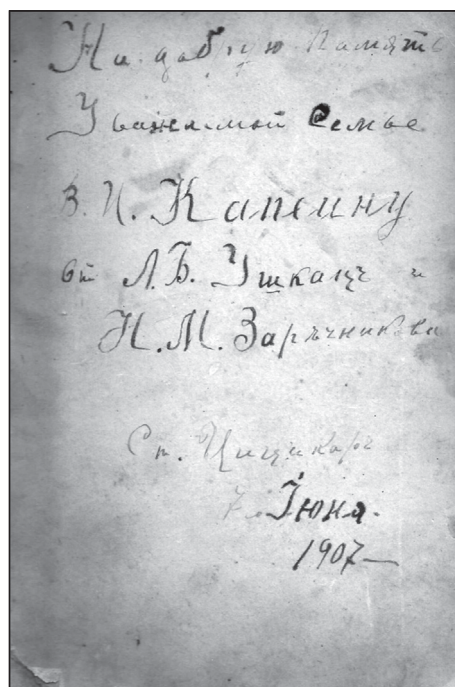 На добрую память
Уважаемой Семье
В. И. Капелину
от Л. Б. Ушкацъ и
Н. М. Заръчникова
Ст. Цицикаръ
7 Іюня.
1907